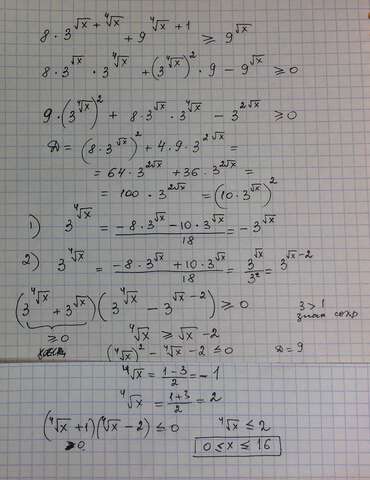 8·3^{√x + ⁴√x} + 9^{⁴√x + 1} ≥ 9^{√x}
8·3^{√x} · 3^{⁴√x} + (3^{⁴√x})² · 9 − 9^{√x} ≥ 0
9·(3^{⁴√x})² + 8·3^{√x}·3^{⁴√x} − 3^{2√x} ≥ 0
D = (8·3^{√x})² + 4·9·3^{2√x} =
= 64·3^{2√x} + 36·3^{2√x} =
= 100·3^{2√x} = (10·3^{√x})²
1) 3^{⁴√x} = (−8·3^{√x} − 10·3^{√x})/18 = −3^{√x}
2) 3^{⁴√x} = (−8·3^{√x} + 10·3^{√x})/18 = 3^{√x}/3² = 3^{√x−2}
(3^{⁴√x} + 3^{√x})(3^{⁴√x} − 3^{√x−2}) ≥ 0 3 > 1
≥ 0 ⁴√x ≥ √x − 2 знак сохр
(⁴√x)² − ⁴√x − 2 ≤ 0 D = 9
⁴√x = (1−3)/2 = −1
⁴√x = (1+3)/2 = 2
(⁴√x + 1)(⁴√x − 2) ≤ 0 ⁴√x ≤ 2
>0 0 ≤ x ≤ 16